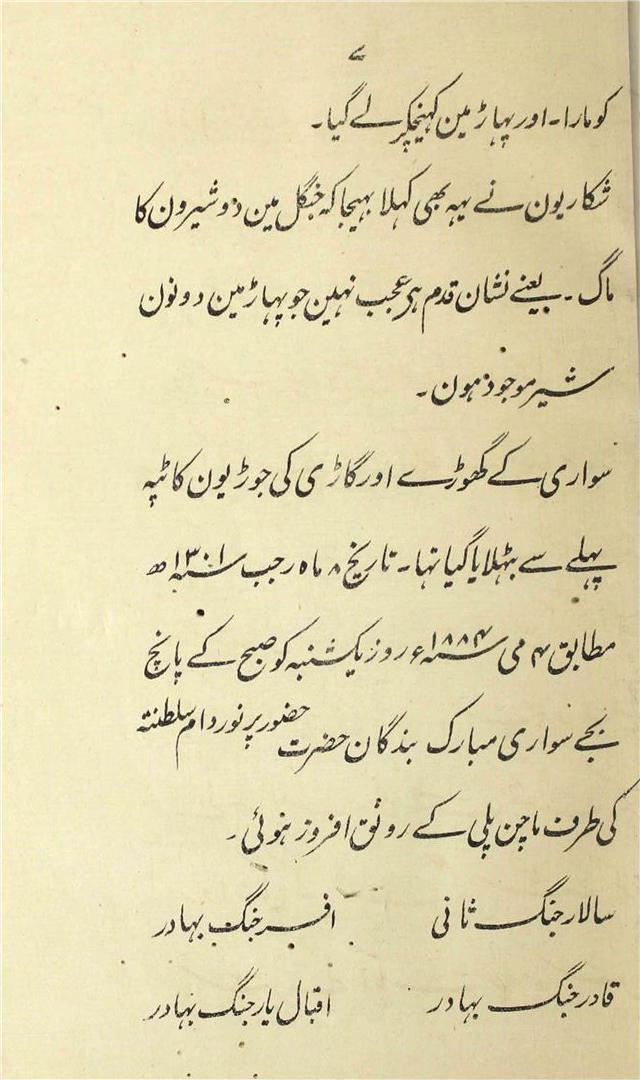 ۷
کو مارا۔ اور پہاڑ مین کہینچکر لے گیا۔
شکاریون نے یہہ بھی کہلا بہیجا کہ جنگل مین دو شیرون کا
ماگ۔ یعنے نشان قدم ہر عجب نہین جو پہاڑ مین دونون
شیر موجود ہون۔
سواری کے گھوڑے اور گاڑی کی جوڑیون کا ٹپہ
پہلے سے بٹہلایا گیا تہا۔ تاریخ ۸ ماہ رجب سنہ ۱۳۰۱ ھ
مطابق ۴ می سنہ ۱۸۸۴ ء روز یکشنبہ کو صبح کے پانچ
بجے سواری مبارک بندگان حضرت حضور پر نور دام سلطنتہ
کی طرف ماچن پلی کے رونق افروز ہوئی۔
سالار جنگ ثانی افسر جنگ بہادر
قادر جنگ بہادر اقبال یار جنگ بہادر